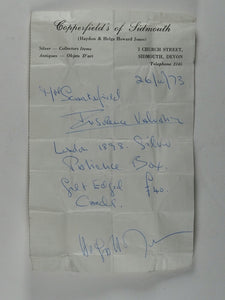 Copperfield's of Sidmouth
(Haydon & Helga Howard Jones)
Silver — Collectors Items
Antiques — Objets D'art
1 CHURCH STREET,
SIDMOUTH, DEVON
Telephone
26/4/73
Insurance Valuation
London 1898. Silver
Patience Box
Gilt Edged £40.
Cards.